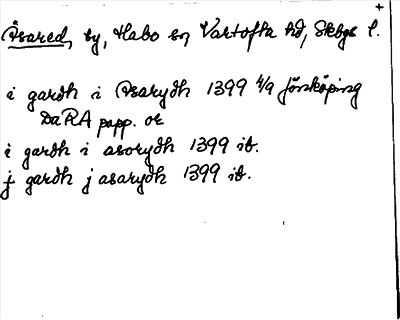 +
Åsared, by, Habo sn, Vartofta hd, Skbgs l.
i gardh i Asarydh 1399 4/9 Jönköping
DaRA papp. or
i gardh i asorydh 1399 ib.
j gardh j asarydh 1399 ib.